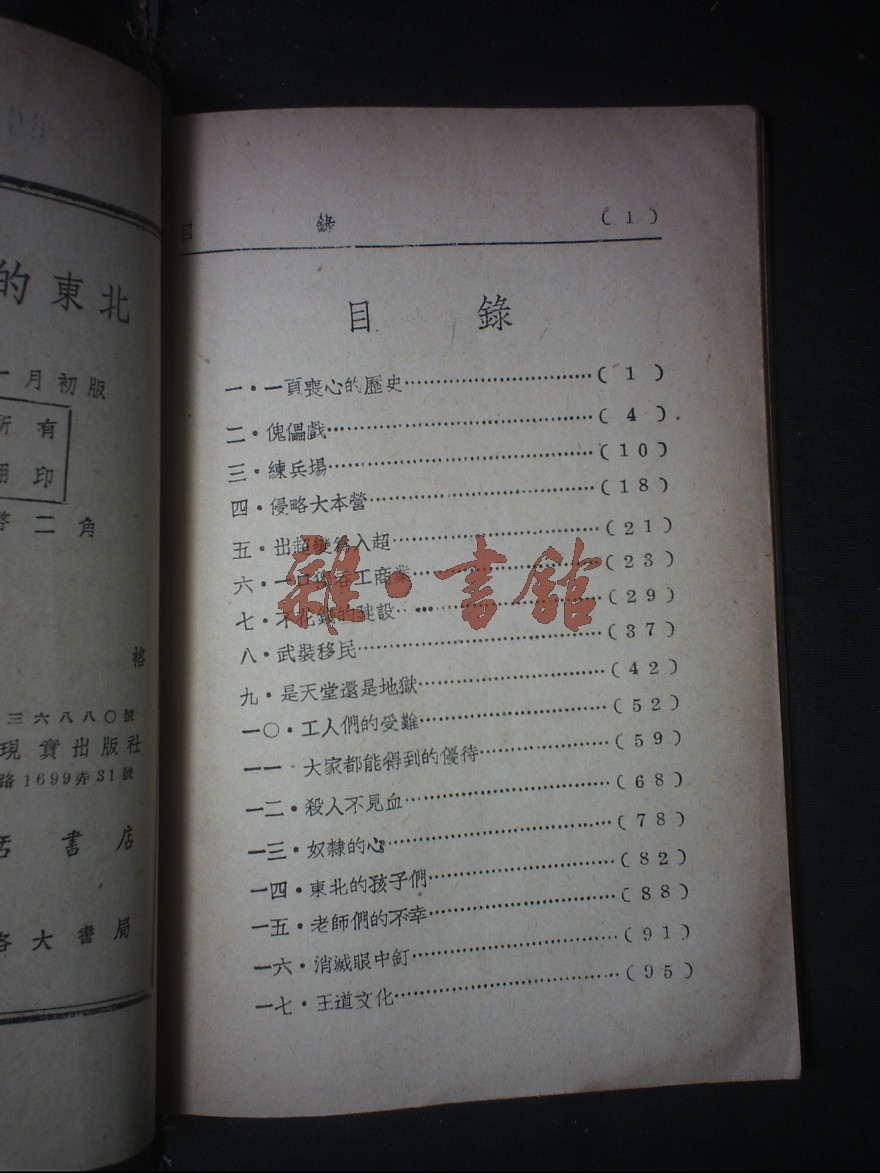 的東北
一月初版
所有
翻印
二角
格
三六八八〇號
現實出版社
路1699弄31號
書店
各大書局
目 錄 (1)
目 錄
一·一頁喪心的歷史……(1)
二·傀儡戲……(4)
三·練兵場……(10)
四·侵略大本營……(18)
五·出超變為入超……(21)
六·一口獨吞工商業……(23)
七·不花錢的建設……(29)
八·武裝移民……(37)
九·是天堂還是地獄……(42)
一〇·工人們的受難……(52)
一一 大家都能得到的優待……(59)
一二·殺人不見血……(68)
一三·奴隸的心……(78)
一四·東北的孩子們……(82)
一五·老師們的不幸……(88)
一六·消滅眼中釘……(91)
一七·王道文化……(95)
雜·書館